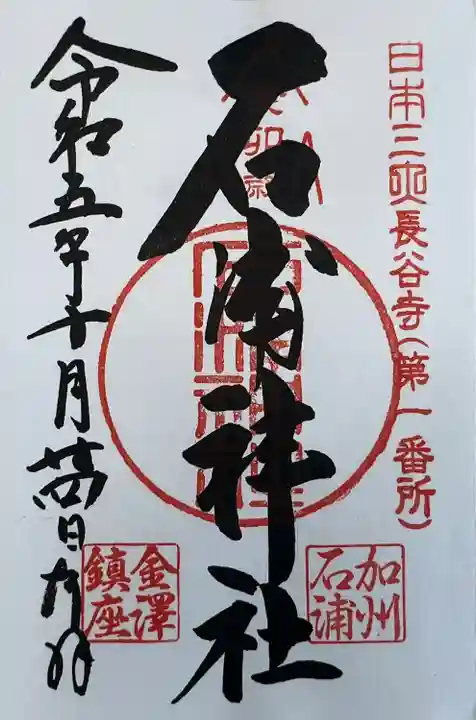 日本三大長谷寺(第一番所)
石浦神社
加州
石浦
金澤
鎮座
令和五年十月廿四日奉拝